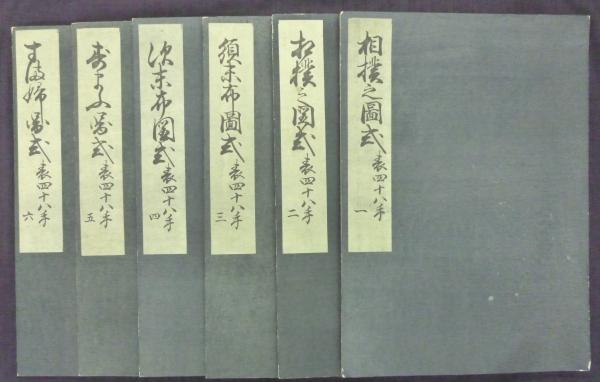 相撲之圖式 表四十八手 一
相撲之図式 表四十八手 二
須末布圖式 表四十八手 三
須末布図式 表四十八手 四
図式 表四十八手 五
図式 表四十八手 六